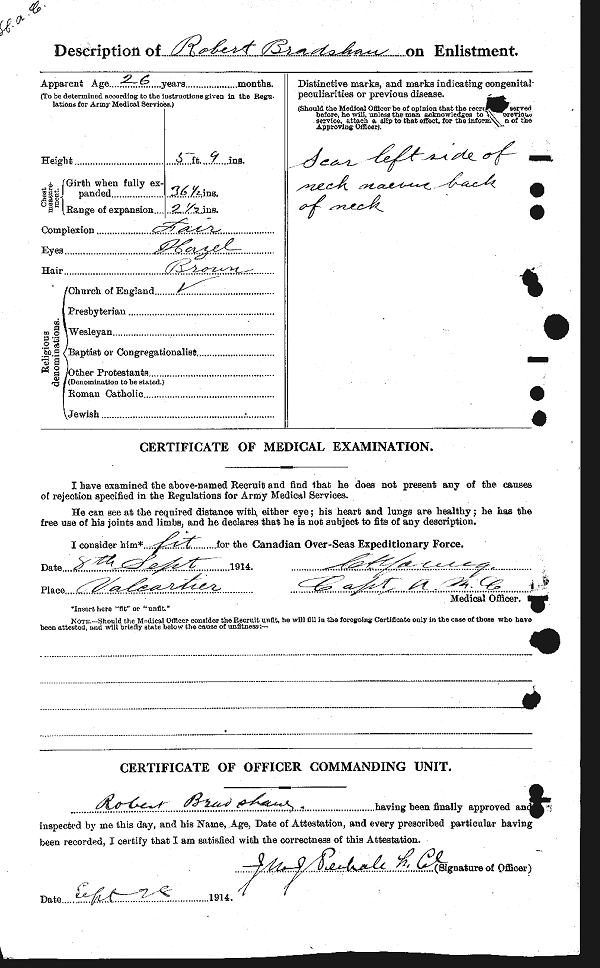 Description of Robert Bradshaw on Enlistment.
Apparent Age 26 years months.
(To be determined according to the instructions given in the Regu-
lations for Army Medical Services.)
Height 5 ft. 9 ins.
Chest measure-
ment.
Girth when fully ex-
panded 36½ ins.
Range of expansion 2½ ins.
Complexion Fair
Eyes Hazel
Hair Brown
Religious denominations.
Church of England ✓
Presbyterian
Wesleyan
Baptist or Congregationalist
Other Protestants
(Denomination to be stated.)
Roman Catholic
Jewish
Distinctive marks, and marks indicating congenital
peculiarities or previous disease.
(Should the Medical Officer be of opinion that the served
before, he will, unless the man acknowledges to previous
service, attach a slip to that effect, for the of the
Approving Officer).
Scar left side of
neck back
of neck
CERTIFICATE OF MEDICAL EXAMINATION.
I have examined the above-named Recruit and find that he does not present any of the causes
of rejection specified in the Regulations for Army Medical Services.
He can see at the required distance with either eye; his heart and lungs are healthy; he has the
free use of his joints and limbs, and he declares that he is not subject to fits of any description.
I consider him* fit for the Canadian Over-Seas Expeditionary Force.
Date 8th Sept 1914.
Place Valcartier Capt A M C
Medical Officer.
*Insert here "fit" or "unfit."
NOTE.—Should the Medical Officer consider the Recruit unfit, he will fill in the foregoing Certificate only in the case of those who have
been attested, and will briefly state below the cause of unfitness:—
CERTIFICATE OF OFFICER COMMANDING UNIT.
Robert Bradshaw having been finally approved and
inspected by me this day, and his Name, Age, Date of Attestation, and every prescribed particular having
been recorded, I certify that I am satisfied with the correctness of this Attestation.
(Signature of Officer)
Date Sept 1914.